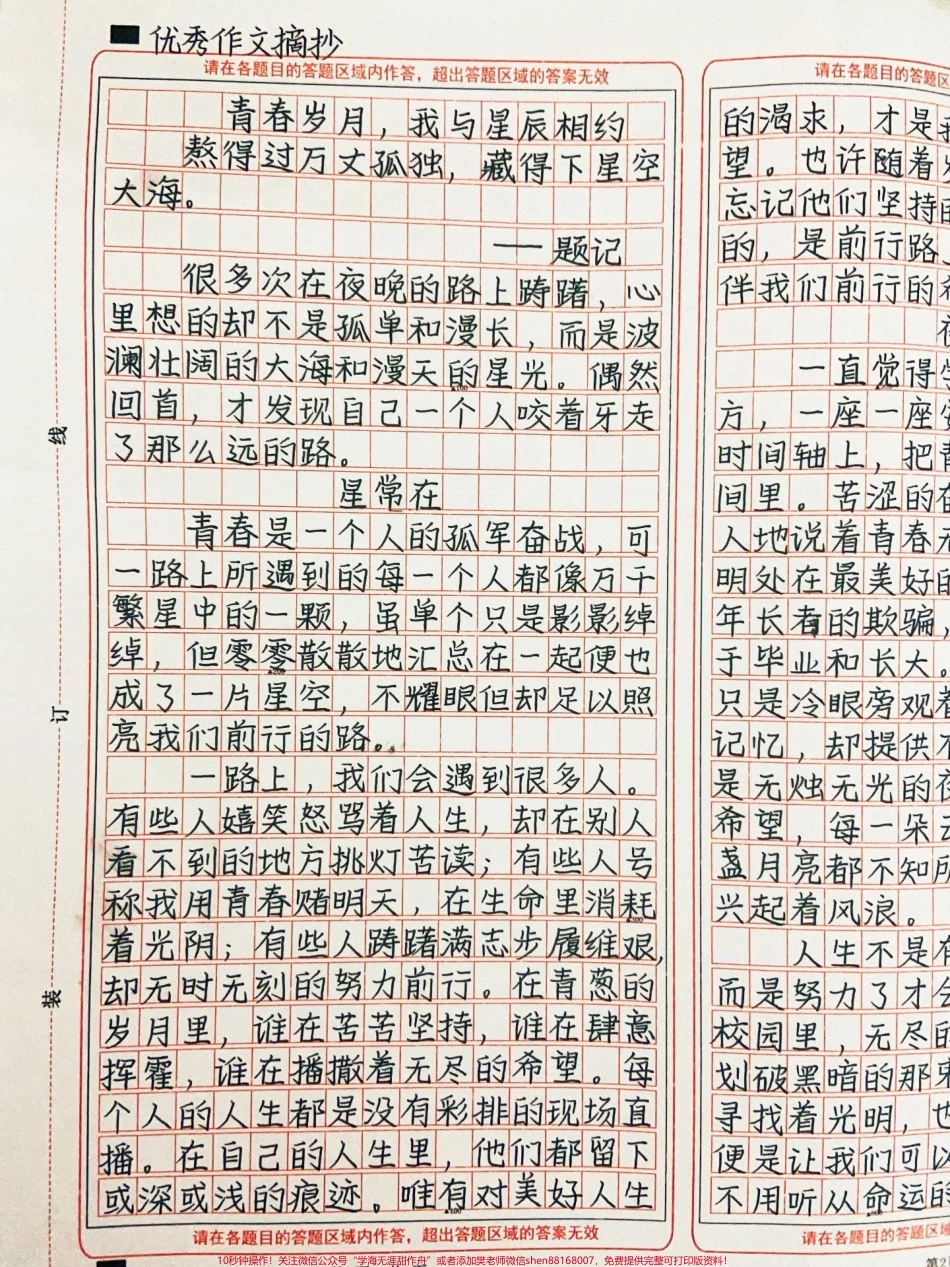 优秀作文摘抄
请在各题目的答题区域内作答，超出答题区域的答案无效
青春岁月，我与星辰相约
熬得过万丈孤独，藏得下星空
大海。
——题记
很多次在夜晚的路上踌躇，心
里想的却不是孤单和漫长，而是波
澜壮阔的大海和漫天的星光。偶然
回首，才发现自己一个人咬着牙走
了那么远的路。
星常在
青春是一个人的孤军奋战，可
一路上所遇到的每一个人都像万千
繁星中的一颗，虽单个只是影影绰
绰，但零零散散地汇总在一起便也
成了一片星空，不耀眼但却足以照
亮我们前行的路。
一路上，我们会遇到很多人。
有些人嬉笑怒骂着人生，却在别人
看不到的地方挑灯苦读；有些人号
称我用青春赌明天，在生命里消耗
着光阴；有些人踌躇满志步履维艰，
却无时无刻的努力前行。在青葱的
岁月里，谁在苦苦坚持，谁在肆意
挥霍，谁在播撒着无尽的希望。每
个人的人生都是没有彩排的现场直
播。在自己的人生里，他们都留下
或深或浅的痕迹。唯有对美好人生
请在各题目的答题区域内作答，超出答题区域的答案无效
请在各题目的答题区域
的渴求，才是
望。也许随着
忘记他们坚持
的，是前行路
伴我们前行的
一直觉得
方，一座一座
时间轴上，把
间里。苦涩的
人地说着青春
明处在最美好的
年长者的欺骗，
于毕业和长大。
只是冷眼旁观着
记忆，却提供
是无烛无光的
希望，每一朵
盏月亮都不知所
兴起着风浪。
人生不是
而是努力了才
校园里，无尽的
划破黑暗的那
寻找着光明，也
便是让我们可以
不用听从命运的
请在各题目的答题区域
线
订
装
10秒钟操作！关注微信公众号“学海无涯甜作舟”或者添加樊老师微信shen88168007，免费提供完整可打印版资料！